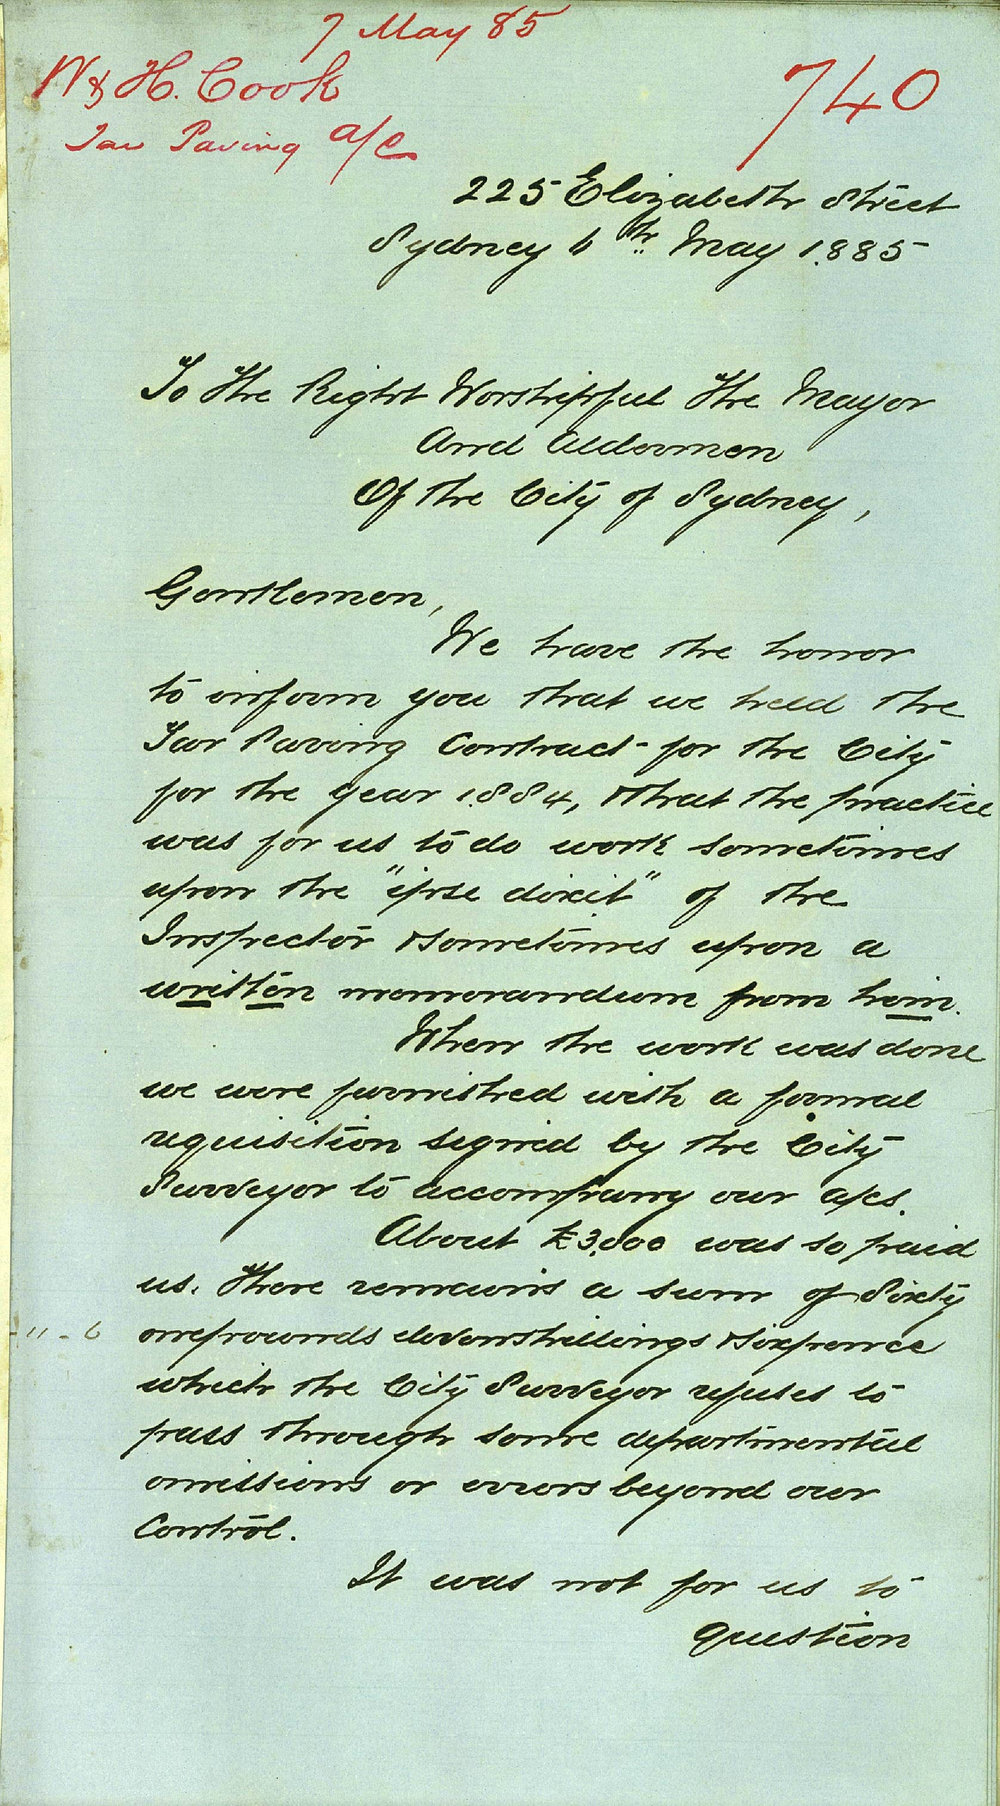 7 May 85
W & H. Cook
740
Tar Paving a/c
225 Elizabeth Street
Sydney 6th May 1885
To The Right Worshipful The Mayor
And Aldermen
Of the City of Sydney,
Gentlemen,
We have the honor
to inform you that we held the
Tar Paving Contract for the City
for the year 1884, & that the practice
was for us to do work sometimes
upon the "ipse dixit" of the
Inspector & sometimes upon a
written memorandum from him.
When the work was done
we were furnished with a formal
requisition signed by the City
Surveyor to accompany our a/cs.
About £3,000 was so paid
us. There remains a sum of Sixty
- 11 - 6
one pounds eleven shillings & sixpence
which the City Surveyor refuses to
pass through some departmental
omissions or errors beyond our
Control.
It was not for us to
question